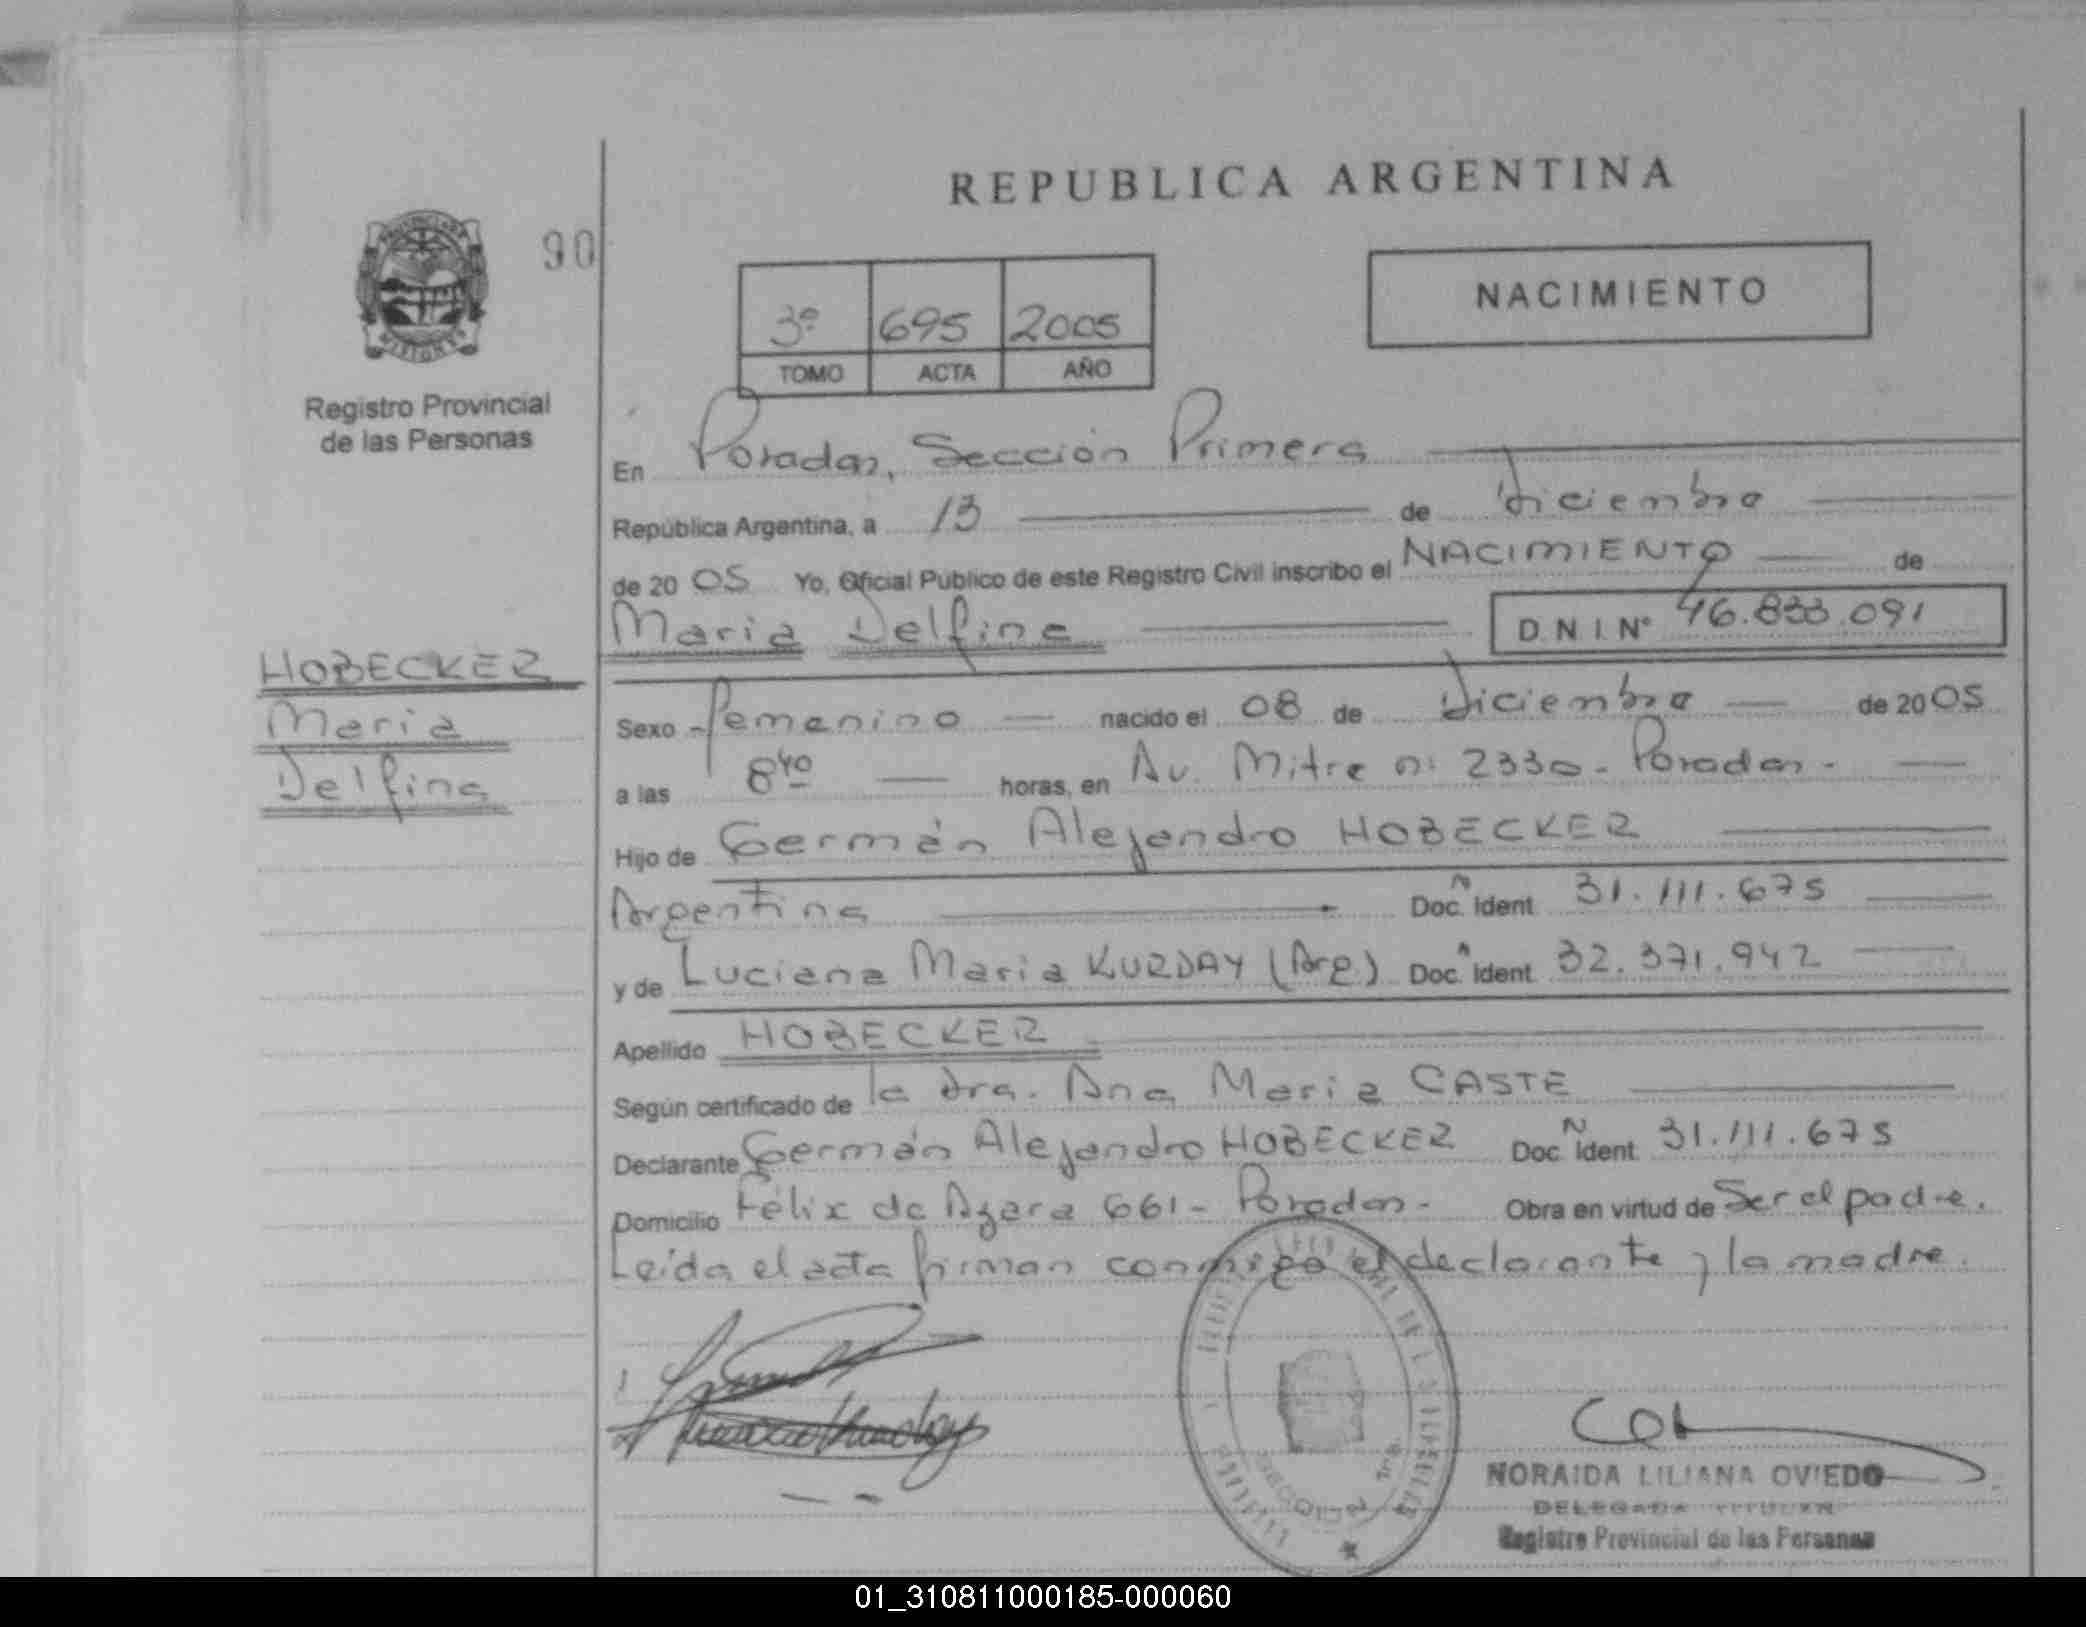 REPUBLICA ARGENTINA
90
NACIMIENTO
3º 695 2005
TOMO ACTA AÑO
PROVINCIA DE
MISIONES
Registro Provincial
de las Personas
En Posadas, Sección Primera
República Argentina, a 13 de Diciembre
de 20 05 Yo, Oficial Público de este Registro Civil inscribo el NACIMIENTO de
Maria Delfina D.N.I.Nº 46.833.091
HOBECKER
Maria
Delfina
Sexo Femenino nacido el 08 de Diciembre de 20 05
a las 8 40 horas, en Av. Mitre n: 2330 - Posadas -
Hijo de Germán Alejandro HOBECKER
Argentina Doc. Ident. 31.111.675
y de Luciana Maria KURDAY (Arg) Doc. Ident. 32.371.942
Apellido HOBECKER
Según certificado de la Dra. Ana Maria CASTE
Declarante Germán Alejandro HOBECKER Doc. Ident. 31.111.675
Domicilio Félix de Azara 661 - Posadas - Obra en virtud de Ser el padre.
Leída el acta firman conmigo el declarante y la madre.
NORAIDA LILIANA OVIEDO
DELEGADA TITULAR
Registro Provincial de las Personas
01_310811000185-000060